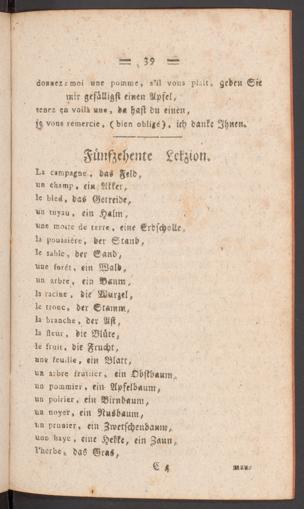 = 39 =
donnez-moi une pomme, s'il vous plait, geben Sie
mir gefälligst einen Apfel,
tenez en voilà une, da hast du einen,
je vous remercie, (bien obligé), ich danke Ihnen.
Fünfzehente Lekzion.
La campagne, das Feld,
un champ, ein Akker,
le bled, das Getreide,
un tuyau, ein Halm,
une motte de terre, eine Erdscholle,
la poussière, der Staub,
le sable, der Sand,
une forêt, ein Wald,
un arbre, ein Baum,
la racine, die Wurzel,
le tronc, der Stamm,
la branche, der Ast,
la fleur, die Blüte,
le fruit, die Frucht,
une feuille, ein Blatt,
un arbre fruitier, ein Obstbaum,
un pommier, ein Apfelbaum,
un poirier, ein Birnbaum,
un noyer, ein Nusbaum,
un prunier, ein Zwetschenbaum,
une haye, eine Hekke, ein Zaun,
l'herbe, das Gras,
C 4